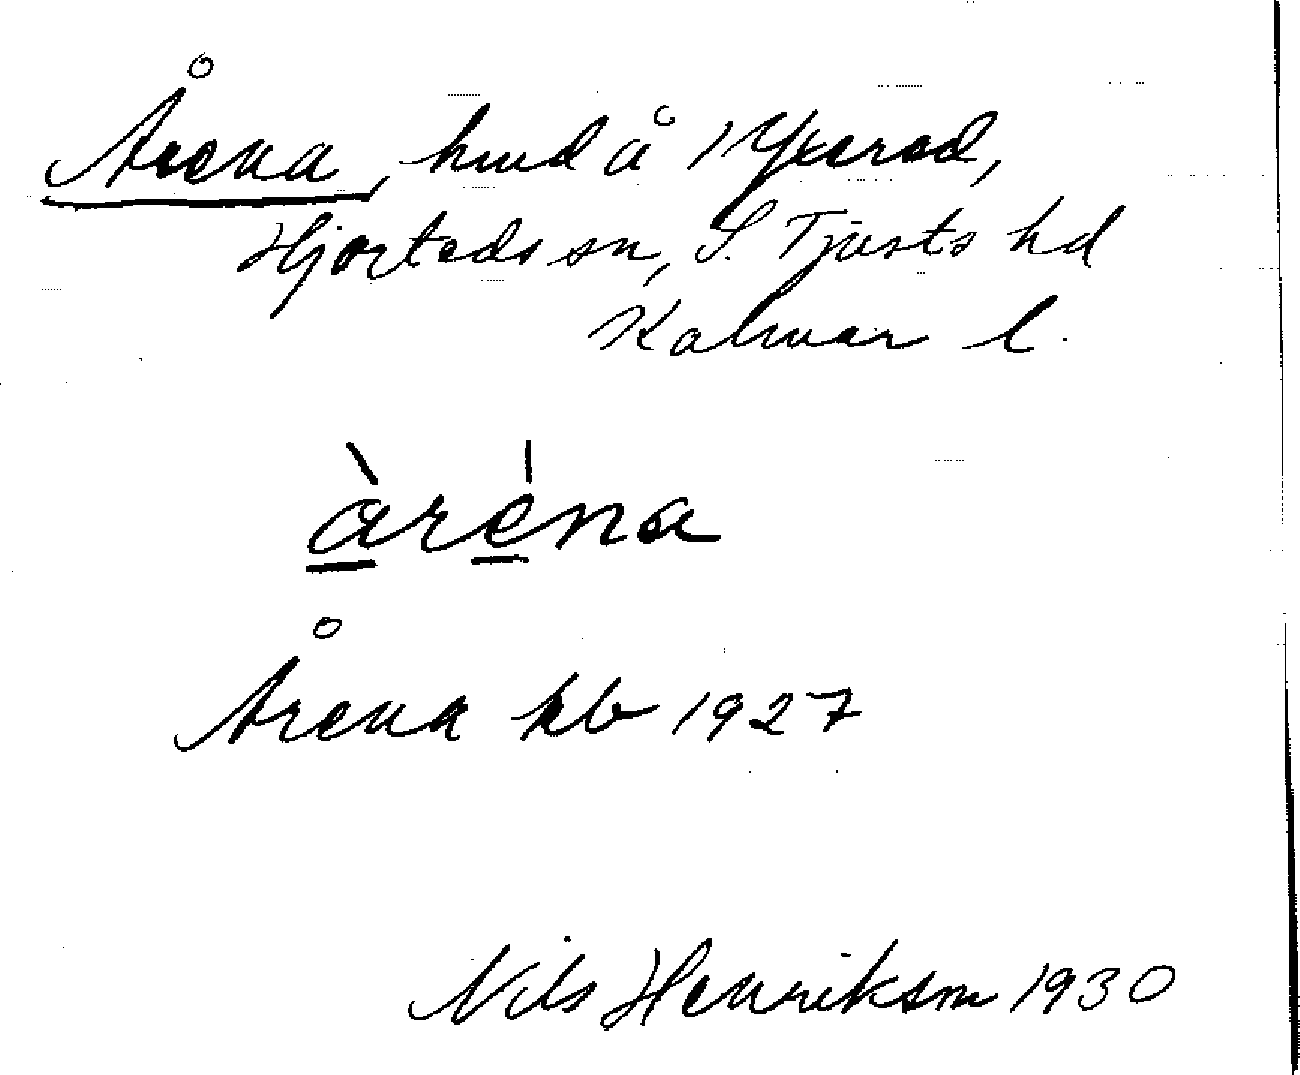 Årena, hmd å 1 Yxered,
Hjorteds sn, S. Tjusts hd
Kalmar l.
àrėna
Årena kb 1927
Nils Henriksson 1930